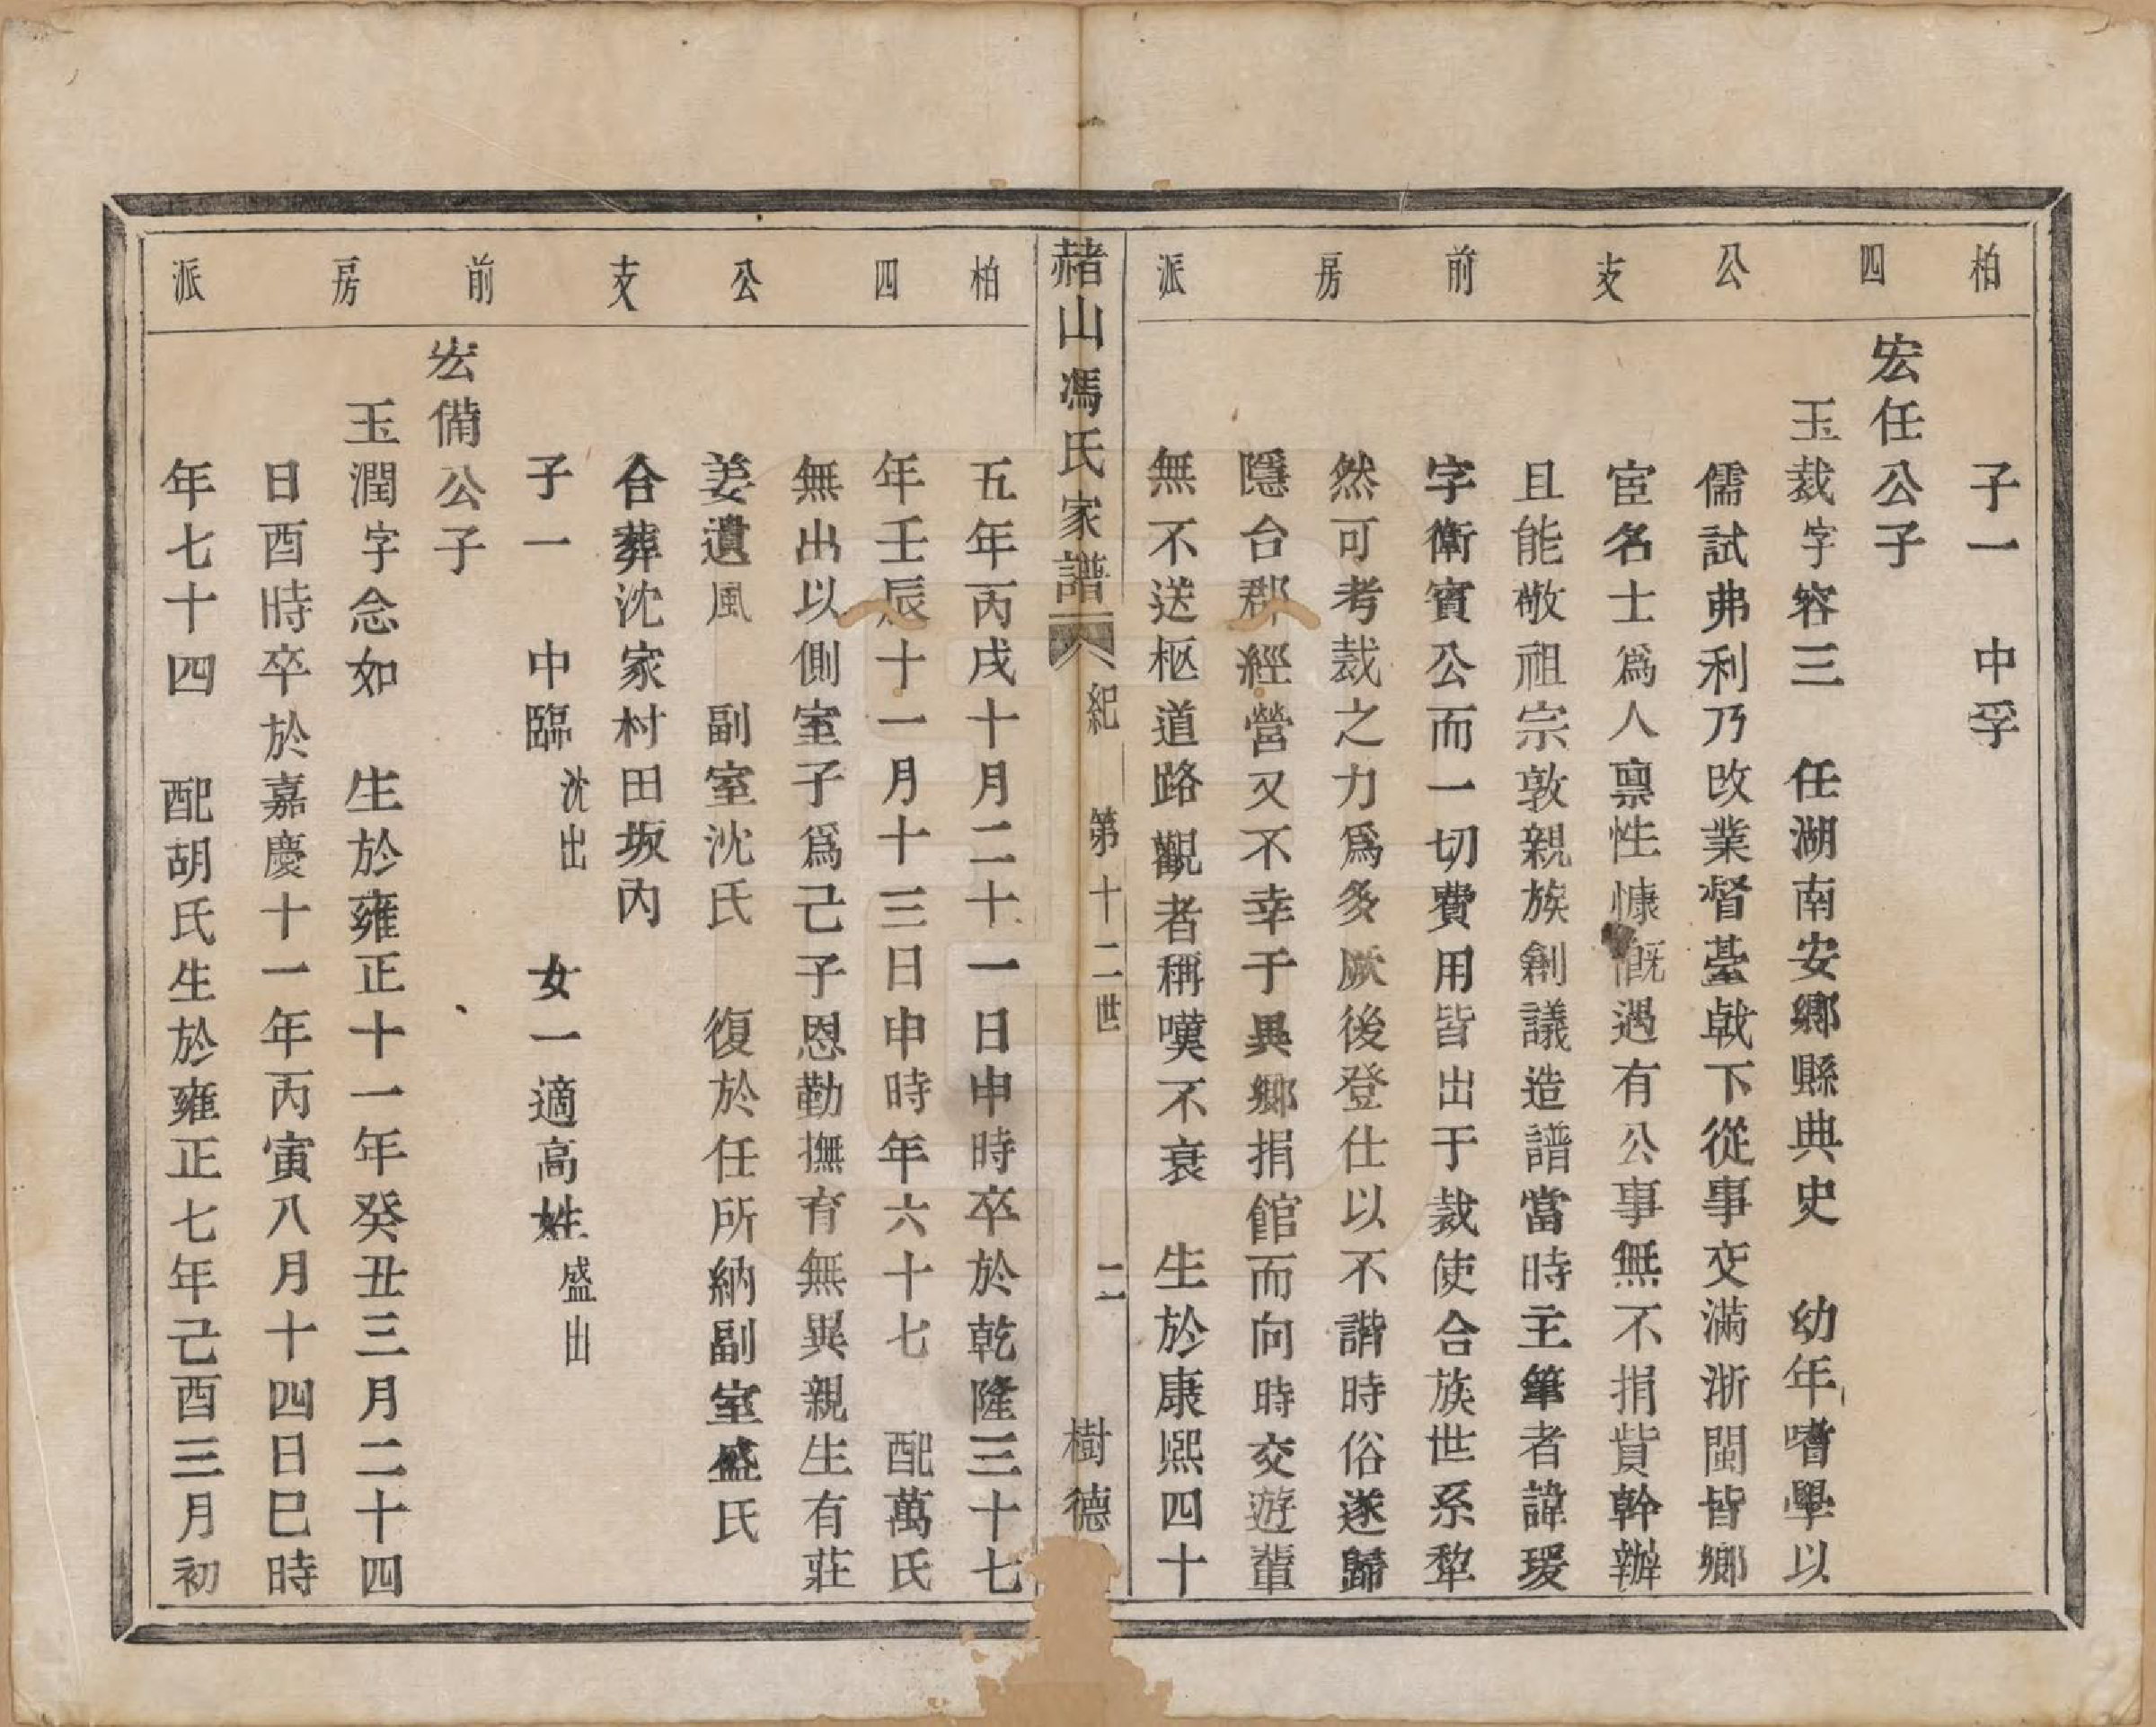 柏四公支前房派
子一　中孚
宏任公子
玉裁字容三　任湖南安鄉縣典史　幼年嗜學以
儒試弗利乃改業督臺戟下從事交滿浙閩皆鄉
宦名士爲人禀性慷慨遇有公事無不捐貲幹辦
且能敬祖宗敦親族創議造譜當時主筆者諱瑗
字衛賓公而一切費用皆出于裁使合族世系犂
然可考裁之力爲多厥後登仕以不諧時俗遂歸
隱台郡經營又不幸于異鄉捐館而向時交遊輩
無不送柩道路觀者稱嘆不衰　生於康熙四十
赭山馮氏家譜　紀　第十二世　二　樹德
柏四公支前房派
五年丙戌十月二十一日申時卒於乾隆三十七
年壬辰十一月十三日申時年六十七　配萬氏
無出以側室子爲己子恩勤撫育無異親生有莊
姜遺風　副室沈氏　復於任所納副室盛氏
合葬沈家村田坂內
子一　中臨沈出　女一適高姓盛出
宏備公子
玉潤字念如　生於雍正十一年癸丑三月二十四
日酉時卒於嘉慶十一年丙寅八月十四日巳時
年七十四　配胡氏生於雍正七年己酉三月初